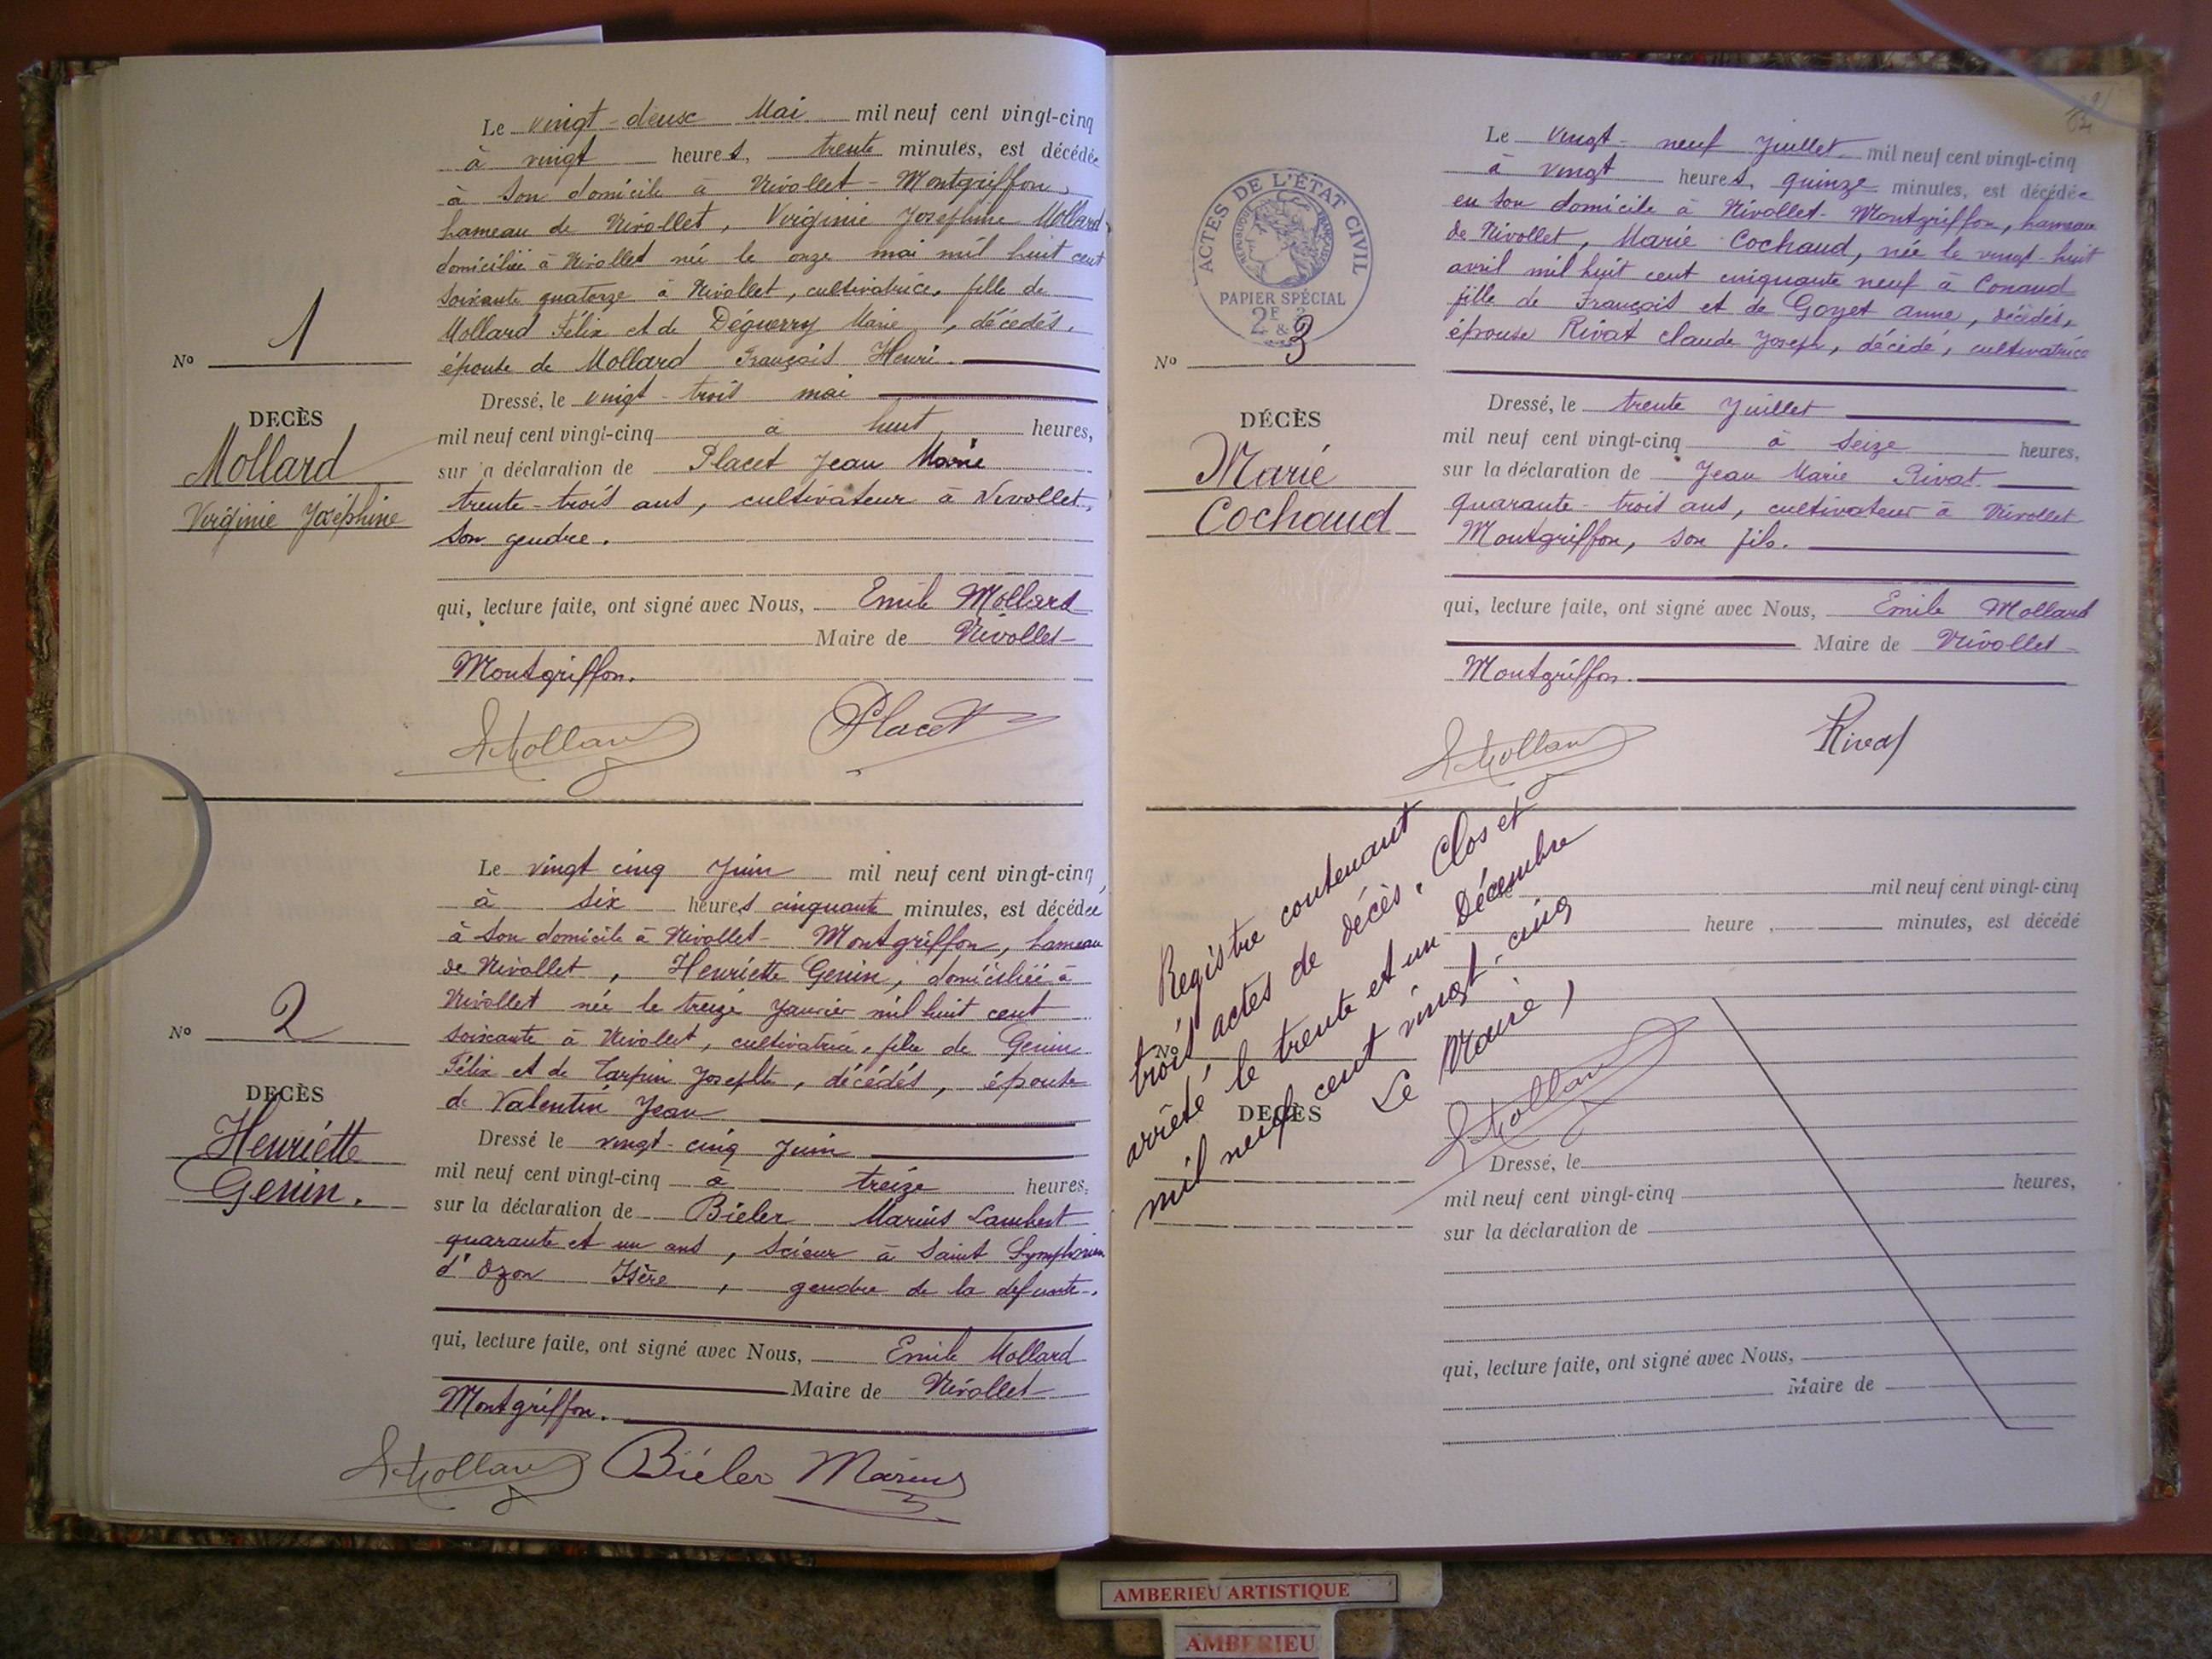 Le vingt-deux Mai mil neuf cent vingt-cinq
à vingt heures, trente minutes, est décédée
à son domicile à Nivollet-Montgriffon,
hameau de Nivollet, Virginie Josephine Mollard
domiciliée à Nivollet née le onze mai mil huit cent
soixante quatorze à Nivollet, cultivatrice, fille de
Mollard Félix et de Déguerry Marie, décédés,
épouse de Mollard François Henri.
Dressé, le vingt-trois mai
mil neuf cent vingt-cinq à huit heures,
sur la déclaration de Placet Jean Marie
trente-trois ans, cultivateur à Nivollet,
son gendre.
qui, lecture faite, ont signé avec Nous, Emile Mollard
Maire de Nivollet-
Montgriffon.
EMollard Placet
No 1
DECÈS
Mollard
Virginie Joséphine
Le vingt cinq Juin mil neuf cent vingt-cinq,
à six heures cinquante minutes, est décédée
à son domicile à Nivollet-Montgriffon, hameau
de Nivollet, Henriette Genin, domiciliée à
Nivollet née le treize Janvier mil huit cent
soixante à Nivollet, cultivatrice, fille de Genin
Félix et de Tarpin Josephte, décédés, épouse
de Valentin Jean
Dressé le vingt-cinq Juin
mil neuf cent vingt-cinq à treize heures,
sur la déclaration de Bieler Marius Lambert
quarante et un ans, scieur à Saint Symphorien
d'Ozon Isère, gendre de la defunte.
qui, lecture faite, ont signé avec Nous, Emile Mollard
Maire de Nivollet-
Montgriffon.
EMollard Biéler Marius
No 2
DECÈS
Henriette
Genin.
Le vingt-neuf Juillet mil neuf cent vingt-cinq
à vingt heures, quinze minutes, est décédée
en son domicile à Nivollet-Montgriffon, hameau
de Nivollet, Marie Cochaud, née le vingt-huit
avril mil huit cent cinquante neuf à Conand
fille de François et de Goyet anne, décédés,
épouse Rivat Claude Joseph, décédé, cultivatrice
Dressé, le trente Juillet
mil neuf cent vingt-cinq à seize heures,
sur la déclaration de Jean Marie Rivat
quarante-trois ans, cultivateur à Nivollet
Montgriffon, son fils.
qui, lecture faite, ont signé avec Nous, Emile Mollard
Maire de Nivollet-
Montgriffon.
EMollard Rivat
ACTES DE L'ÉTAT CIVIL
RÉPUBLIQUE FRANÇAISE
PAPIER SPÉCIAL
2F
No 3
DÉCÈS
Marie
Cochaud
Registre contenant
trois actes de décès. Clos et
arrêté le trente et un Décembre
mil neuf cent vingt-cinq
Le Maire,
EMollard
mil neuf cent vingt-cinq
heure, minutes, est décédé
No
DECÈS
Dressé, le
mil neuf cent vingt-cinq heures,
sur la déclaration de
qui, lecture faite, ont signé avec Nous,
Maire de
AMBERIEU ARTISTIQUE
AMBERIEU